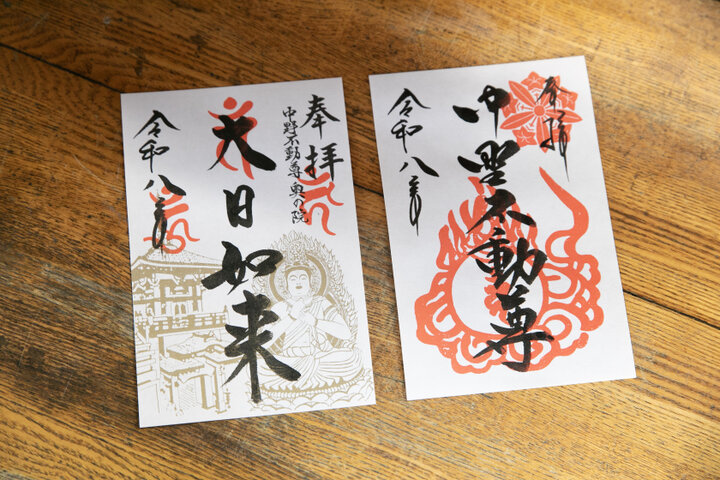 奉拝
中野不動尊奥の院
大日如来
令和八年
奉拝
中野不動尊
令和八年